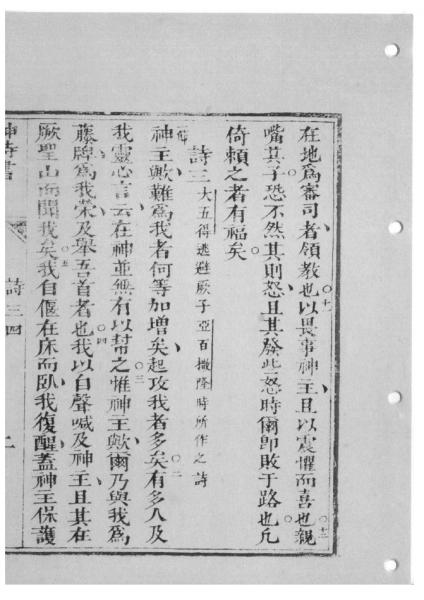 在地爲審司者領教也○十以畏事神主且以震懼而喜也○十二親
嘴其子恐不然其則怒且其發些怒時爾卽敗于路也○凡
倚賴之者有福矣
詩三大五得逃避厥子亞百撒隆時所作之詩
神主歟難爲我者何等加增矣起攻我者多矣○二有多人及
我靈心言云在神並無有以幇之○三惟神主歟爾乃與我爲
藤牌爲我榮及舉吾首者也○四我以自聲喊及神主且其在
厥聖山而聞我矣○五我自偃在床而臥我復醒蓋神主保護
神詩書
詩三四
二